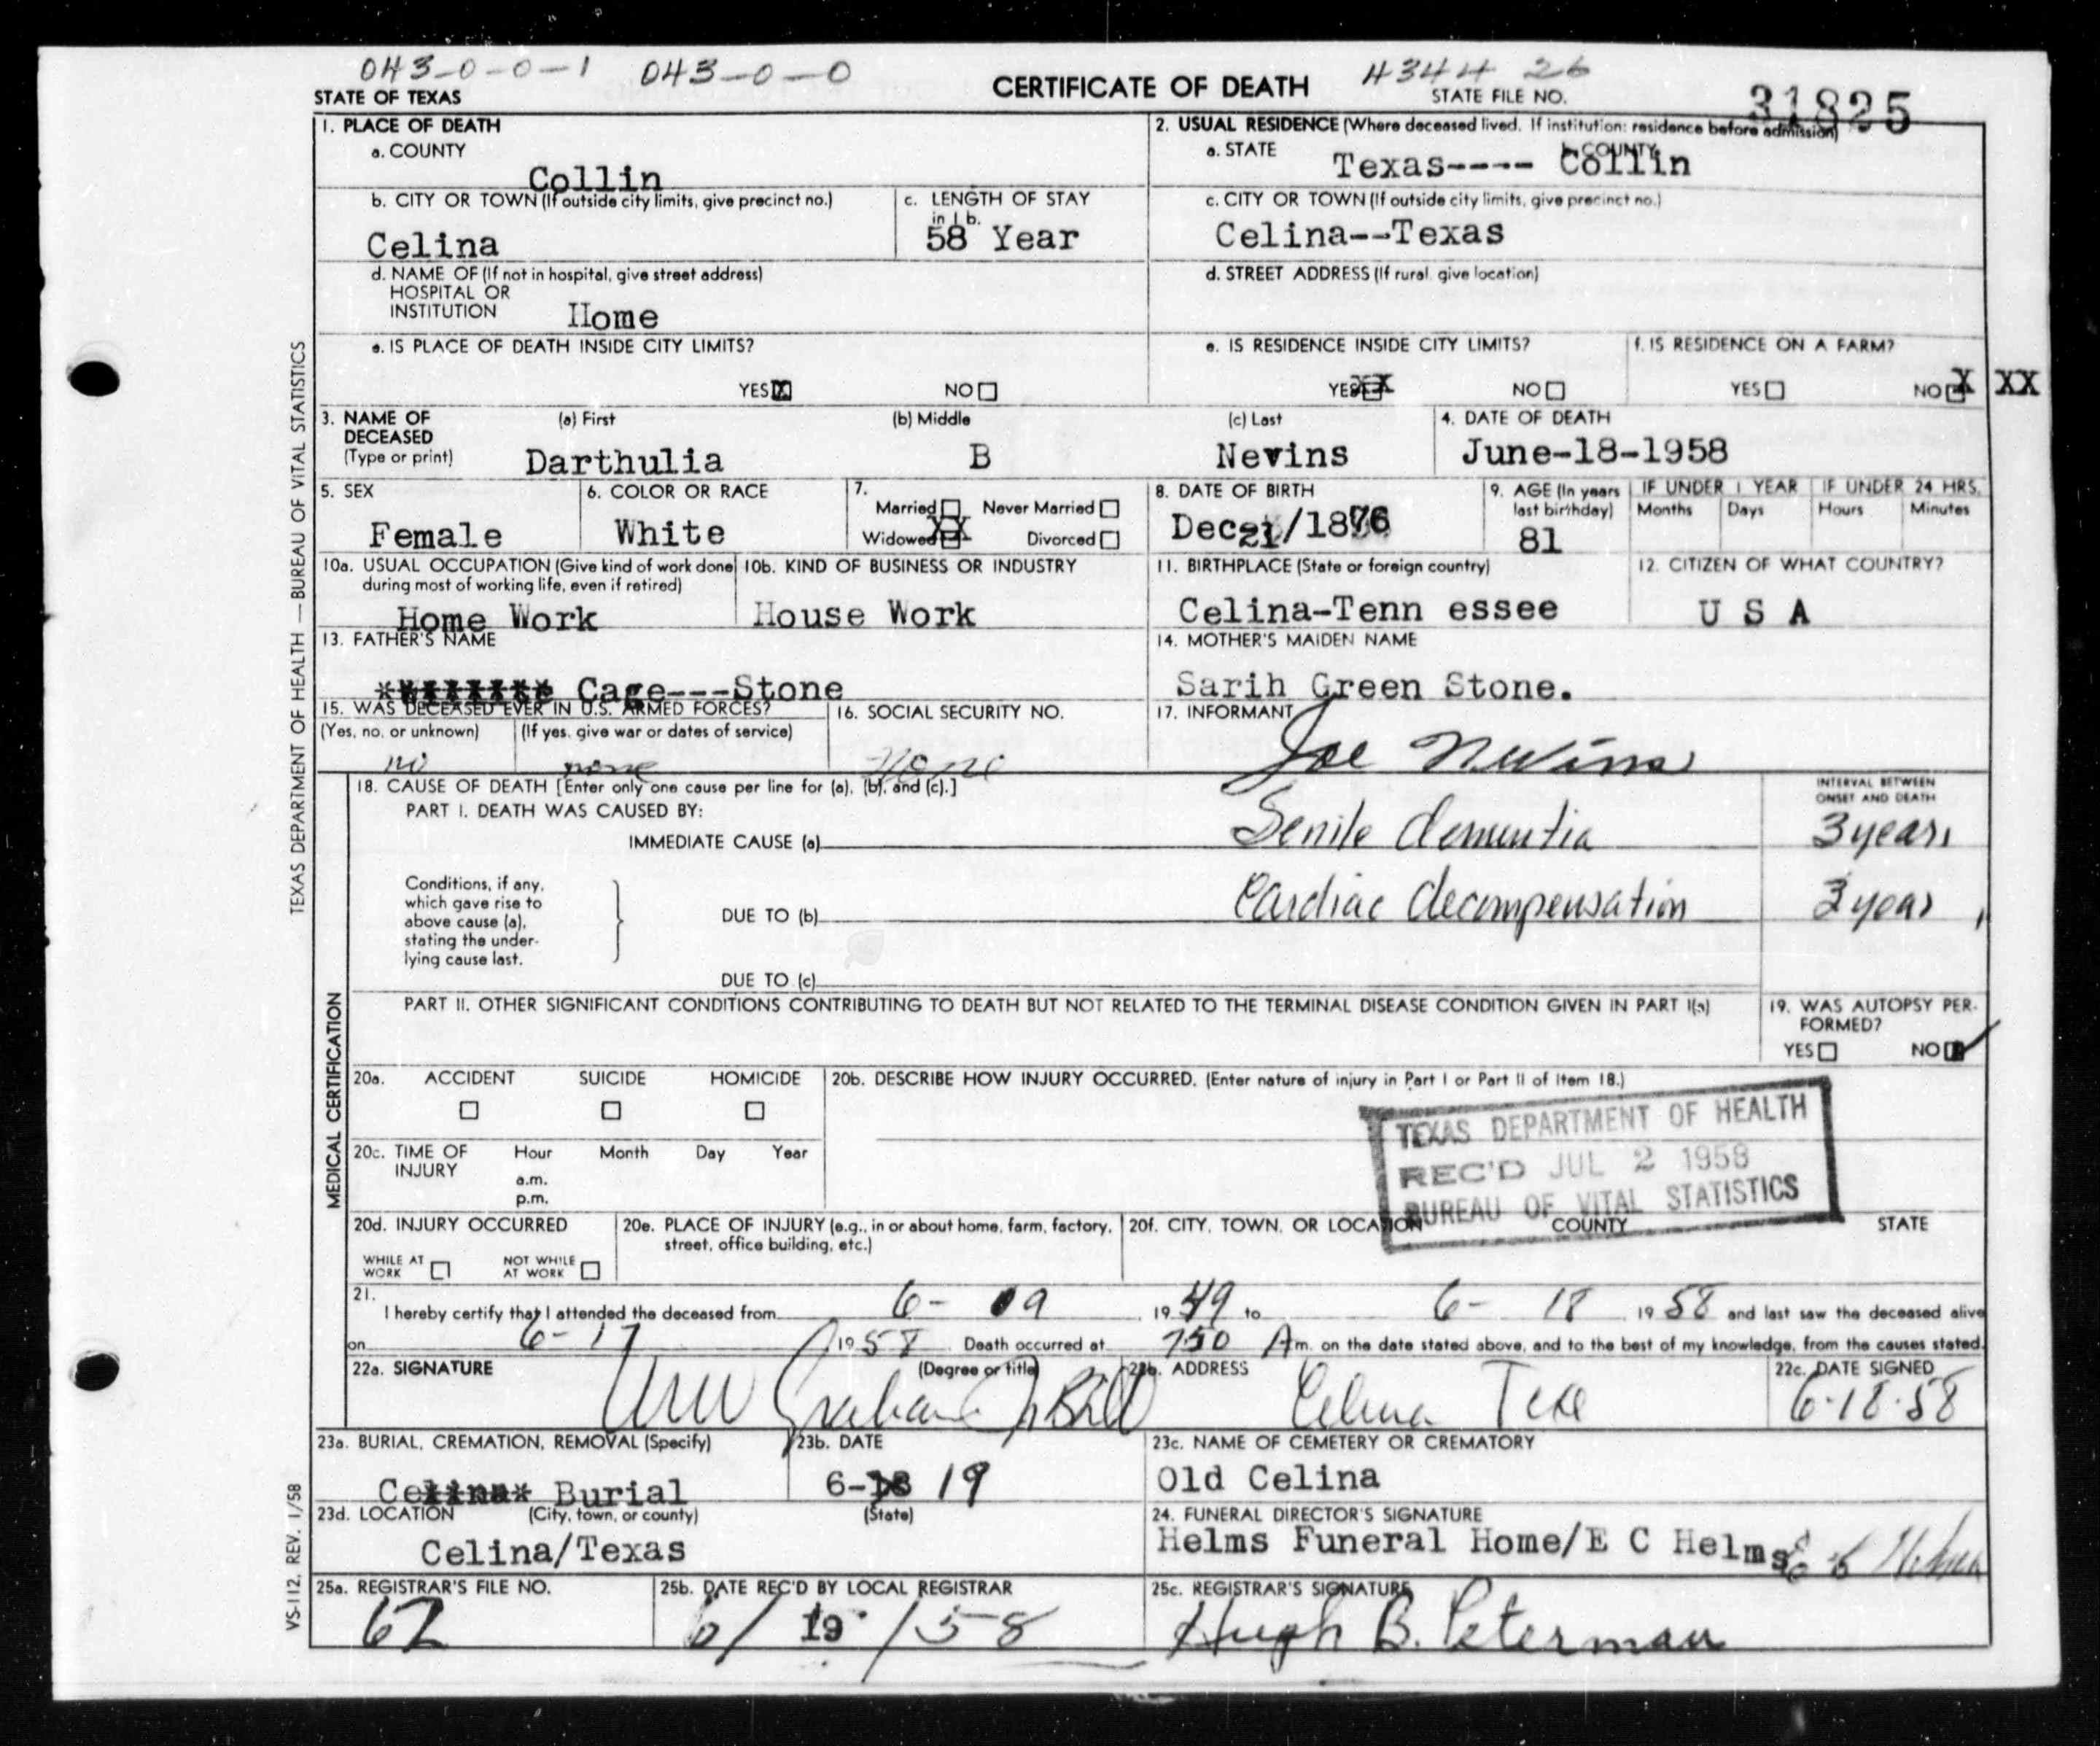 043-0-0-1 043-0-0 CERTIFICATE OF DEATH 4344 26
STATE OF TEXAS STATE FILE NO. 31825
1. PLACE OF DEATH
a. COUNTY
Collin
2. USUAL RESIDENCE (Where deceased lived. If institution: residence before admission)
a. STATE b. COUNTY
Texas---- Collin
b. CITY OR TOWN (If outside city limits, give precinct no.)
Celina
c. LENGTH OF STAY
in 1 b.
58 Year
c. CITY OR TOWN (If outside city limits, give precinct no.)
Celina--Texas
d. NAME OF (If not in hospital, give street address)
HOSPITAL OR
INSTITUTION Home
d. STREET ADDRESS (If rural, give location)
e. IS PLACE OF DEATH INSIDE CITY LIMITS?
YES X NO
e. IS RESIDENCE INSIDE CITY LIMITS?
YES XX NO
f. IS RESIDENCE ON A FARM?
YES NO X XX
3. NAME OF DECEASED
(Type or print)
(a) First (b) Middle (c) Last
Darthulia B Nevins
4. DATE OF DEATH
June-18-1958
5. SEX
Female
6. COLOR OR RACE
White
7.
Married Never Married
Widowed XX Divorced
8. DATE OF BIRTH
Dec21/1876
9. AGE (In years
last birthday)
81
IF UNDER 1 YEAR
Months Days
IF UNDER 24 HRS.
Hours Minutes
10a. USUAL OCCUPATION (Give kind of work done
during most of working life, even if retired)
Home Work
10b. KIND OF BUSINESS OR INDUSTRY
House Work
11. BIRTHPLACE (State or foreign country)
Celina-Tenn essee
12. CITIZEN OF WHAT COUNTRY?
U S A
13. FATHER'S NAME
Cage---Stone
14. MOTHER'S MAIDEN NAME
Sarih Green Stone.
15. WAS DECEASED EVER IN U.S. ARMED FORCES?
(Yes, no, or unknown) (If yes, give war or dates of service)
no none
16. SOCIAL SECURITY NO.
None
17. INFORMANT
Joe Nevins
18. CAUSE OF DEATH [Enter only one cause per line for (a), (b), and (c).]
INTERVAL BETWEEN
ONSET AND DEATH
PART I. DEATH WAS CAUSED BY:
IMMEDIATE CAUSE (a) Senile dementia 3 years
Conditions, if any,
which gave rise to
above cause (a),
stating the under-
lying cause last.
DUE TO (b) Cardiac decompensation 3 years
DUE TO (c)
PART II. OTHER SIGNIFICANT CONDITIONS CONTRIBUTING TO DEATH BUT NOT RELATED TO THE TERMINAL DISEASE CONDITION GIVEN IN PART I(a)
19. WAS AUTOPSY PER-
FORMED?
YES NO
20a. ACCIDENT SUICIDE HOMICIDE
20b. DESCRIBE HOW INJURY OCCURRED. (Enter nature of injury in Part I or Part II of Item 18.)
TEXAS DEPARTMENT OF HEALTH
REC'D JUL 2 1958
BUREAU OF VITAL STATISTICS
20c. TIME OF
INJURY
Hour Month Day Year
a.m.
p.m.
20d. INJURY OCCURRED
WHILE AT
WORK
NOT WHILE
AT WORK
20e. PLACE OF INJURY (e.g., in or about home, farm, factory,
street, office building, etc.)
20f. CITY, TOWN, OR LOCATION COUNTY STATE
21.
I hereby certify that I attended the deceased from 6- 09, 1949 to 6- 18 1958 and last saw the deceased alive
on 6-17, 1958. Death occurred at 750 Am. on the date stated above, and to the best of my knowledge, from the causes stated.
22a. SIGNATURE (Degree or title)
Graham
22b. ADDRESS
Celina Tex
22c. DATE SIGNED
6-18-58
23a. BURIAL, CREMATION, REMOVAL (Specify)
Burial
23b. DATE
6-18 19
23c. NAME OF CEMETERY OR CREMATORY
Old Celina
23d. LOCATION (City, town, or county) (State)
Celina/Texas
24. FUNERAL DIRECTOR'S SIGNATURE
Helms Funeral Home/E C Helms
25a. REGISTRAR'S FILE NO.
62
25b. DATE REC'D BY LOCAL REGISTRAR
6/ 19 /58
25c. REGISTRAR'S SIGNATURE
Hugh B. Peterman
TEXAS DEPARTMENT OF HEALTH — BUREAU OF VITAL STATISTICS
MEDICAL CERTIFICATION
VS-112, REV. 1/58